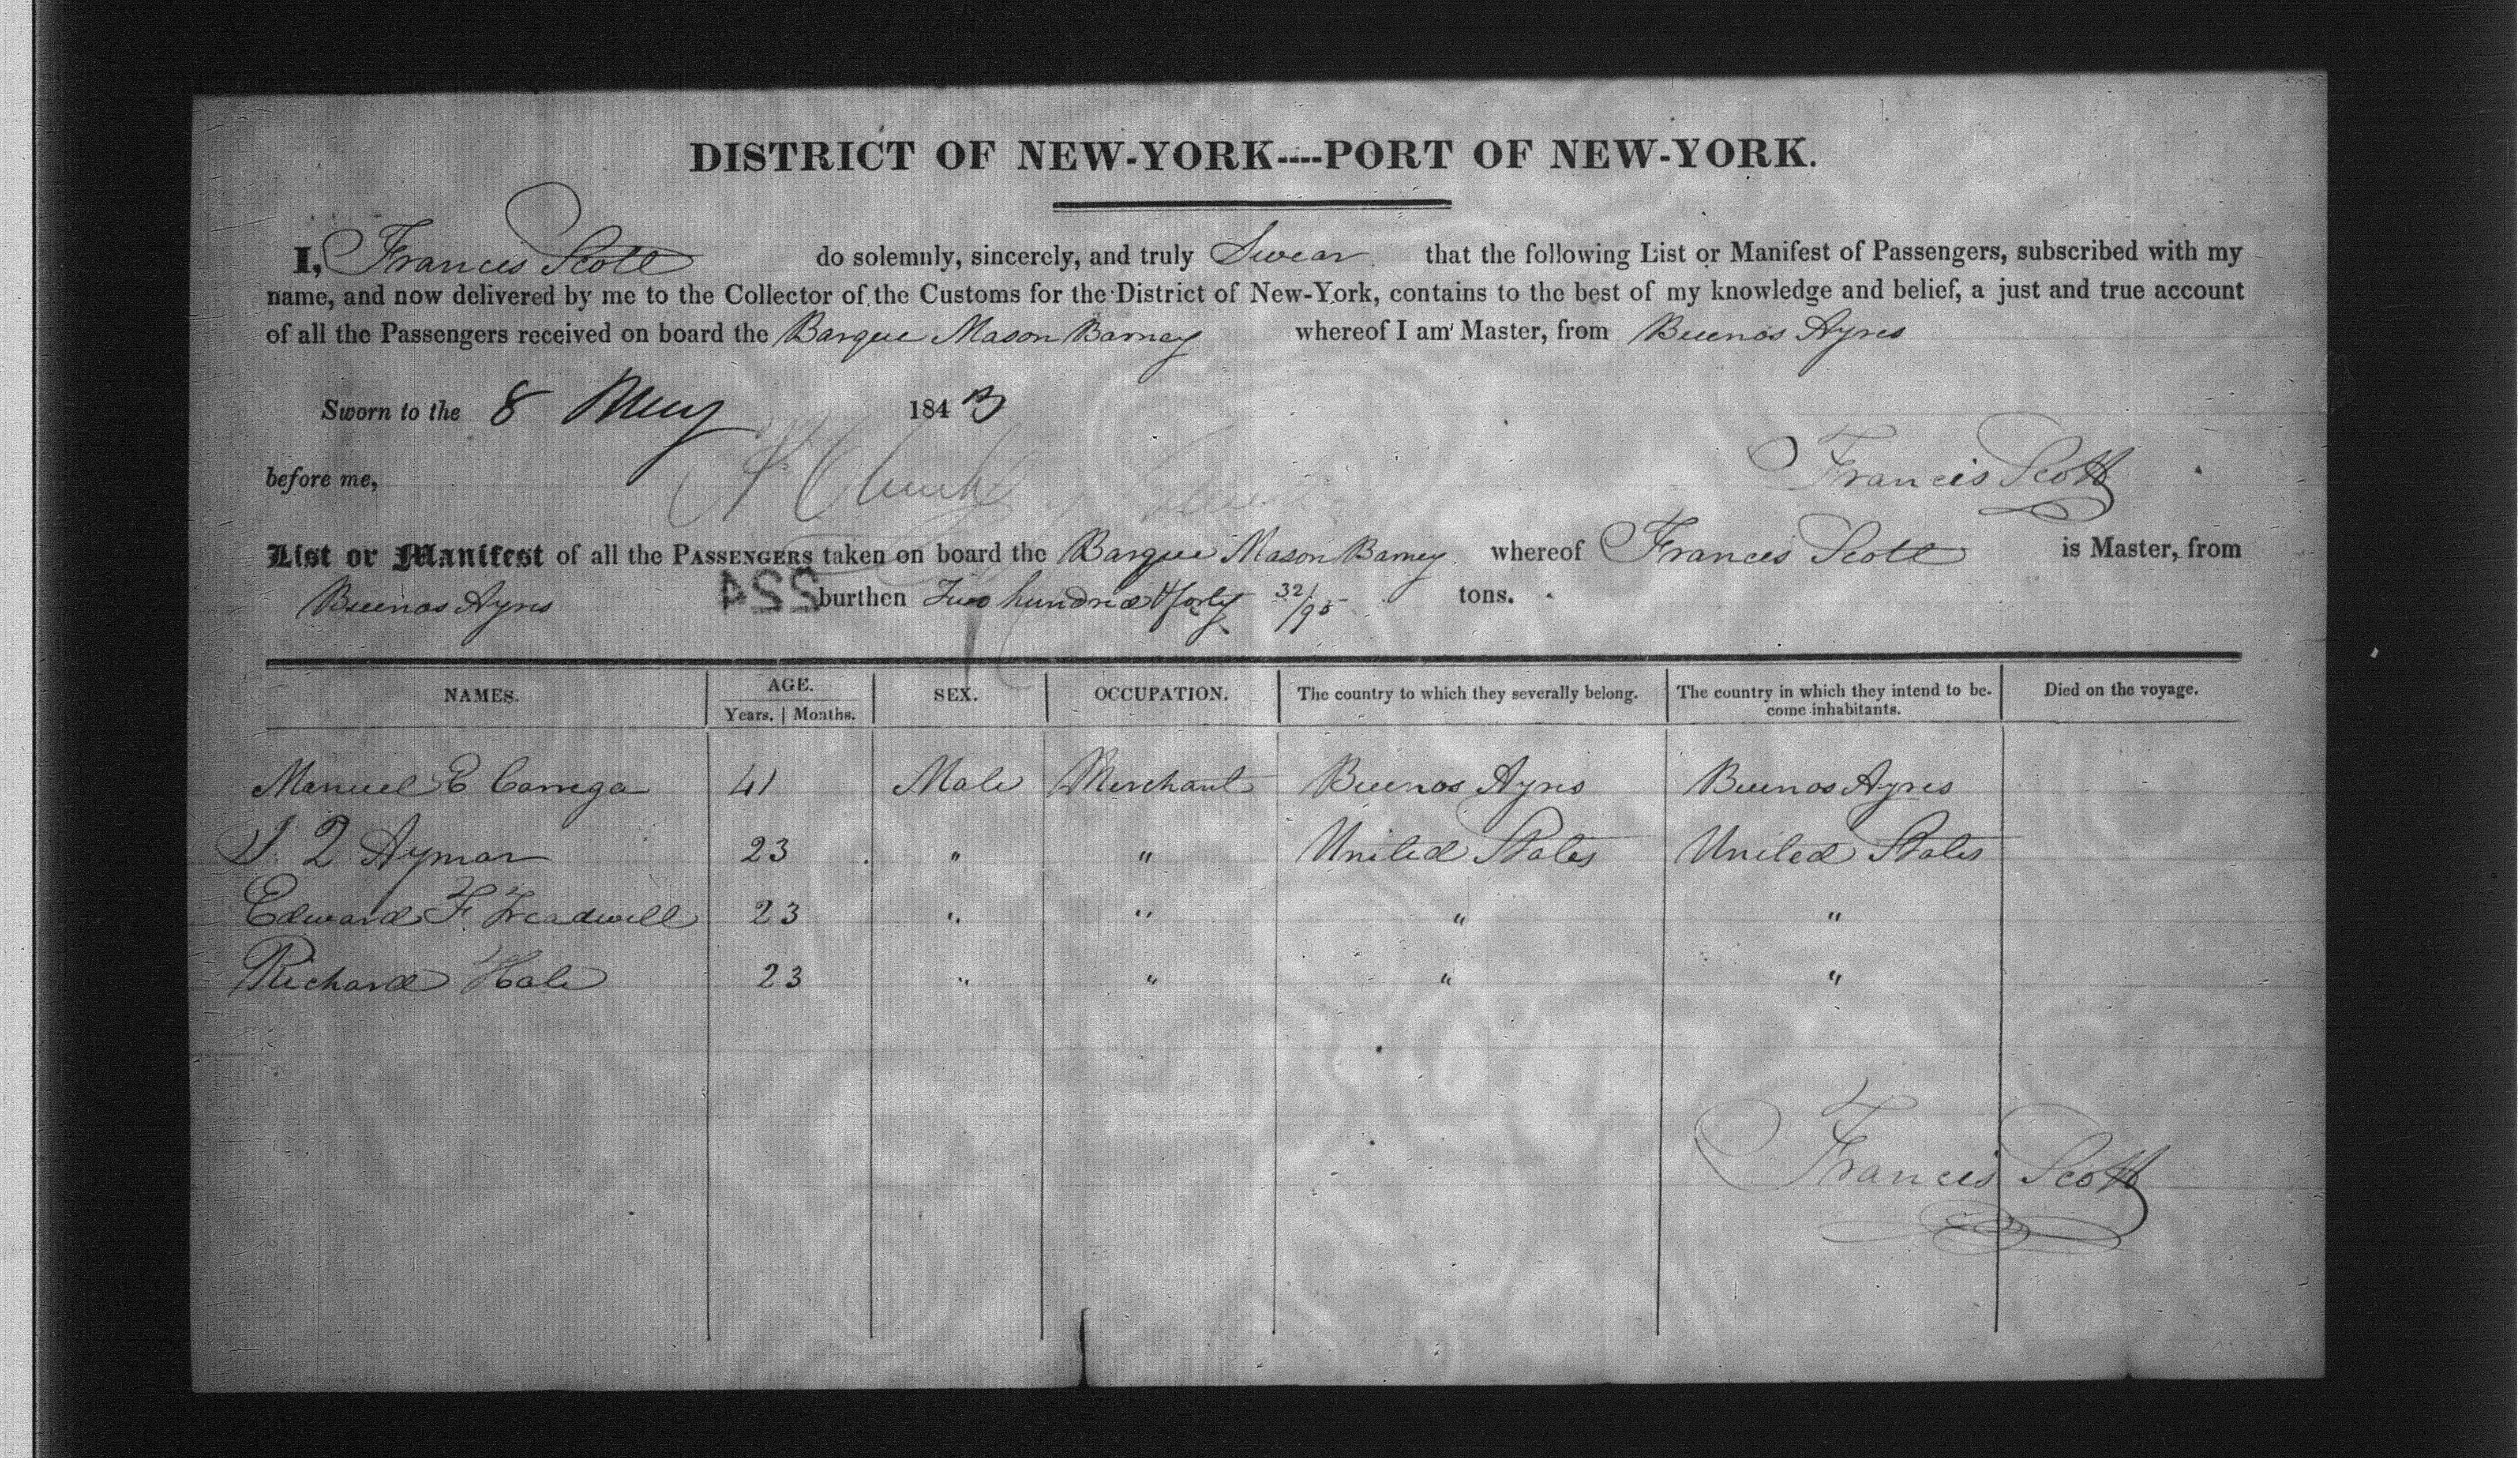 DISTRICT OF NEW-YORK----PORT OF NEW-YORK.
I, Francis Scott do solemnly, sincerely, and truly Swear that the following List or Manifest of Passengers, subscribed with my
name, and now delivered by me to the Collector of the Customs for the District of New-York, contains to the best of my knowledge and belief, a just and true account
of all the Passengers received on board the Barque Mason Barney whereof I am Master, from Buenos Ayres
Sworn to the 8 May 1843
before me,
Francis Scott
List or Manifest of all the PASSENGERS taken on board the Barque Mason Barney whereof Francis Scott is Master, from
Buenos Ayres 224 burthen Two hundred & forty 32/95 tons.
NAMES. AGE. SEX. OCCUPATION. The country to which they severally belong. The country in which they intend to be- Died on the voyage.
Years, | Months. come inhabitants.
Manuel E Carrega 41 Male Merchant Buenos Ayres Buenos Ayres
J. Q Aymar 23 " " United States United States
Edward F. Treadwell 23 " " " "
Richard Hale 23 " " " "
Francis Scott